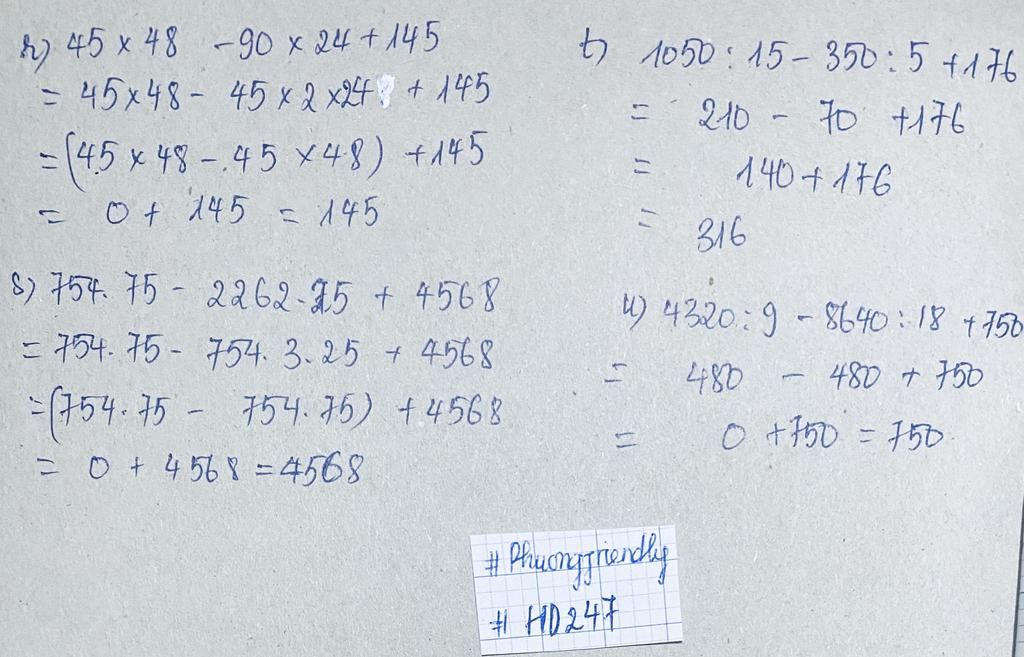 r) 45 × 48 - 90 × 24 + 145
= 45 × 48 - 45 × 2 × 24 + 145
= (45 × 48 - 45 × 48) + 145
= 0 + 145 = 145
s) 754. 75 - 2262. 25 + 4568
= 754. 75 - 754. 3. 25 + 4568
= (754. 75 - 754. 75) + 4568
= 0 + 4568 = 4568
t) 1050 : 15 - 350 : 5 + 176
= 210 - 70 + 176
= 140 + 176
= 316
u) 4320 : 9 - 8640 : 18 + 750
= 480 - 480 + 750
= 0 + 750 = 750
# Phuongfriendly
# HD247